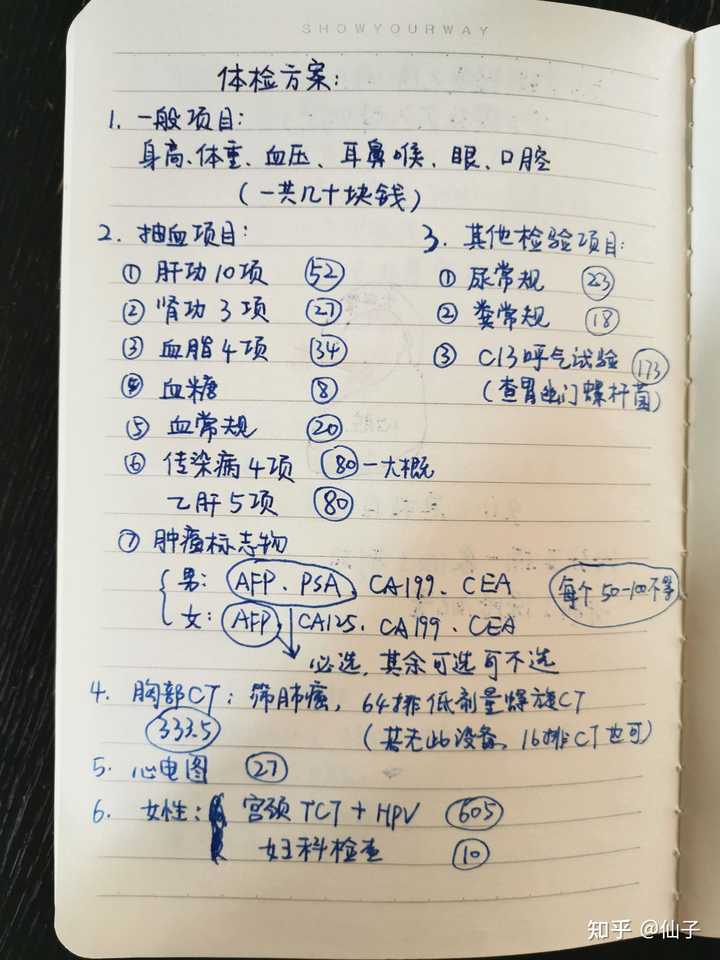 SHOWYOURWAY
体检方案:
1. 一般项目:
身高、体重、血压、耳鼻喉、眼、口腔
(一共几十块钱)
2. 抽血项目:
① 肝功10项 52
② 肾功3项 27
③ 血脂4项 34
④ 血糖 8
⑤ 血常规 20
⑥ 传染病4项 80-大概
乙肝5项 80
3. 其他检验项目:
① 尿常规 23
② 粪常规 18
③ C13呼气试验 173
(查胃幽门螺杆菌)
⑦ 肿瘤标志物
男: AFP、PSA、CA199、CEA
女: AFP、CA125、CA199、CEA
每个50-100不等
必选,其余可选可不选
4. 胸部CT: 筛肺癌, 64排低剂量螺旋CT
333.5 (若无此设备、16排CT也可)
5. 心电图 27
6. 女性: 宫颈TCT+HPV 605
妇科检查 10
知乎 @仙子